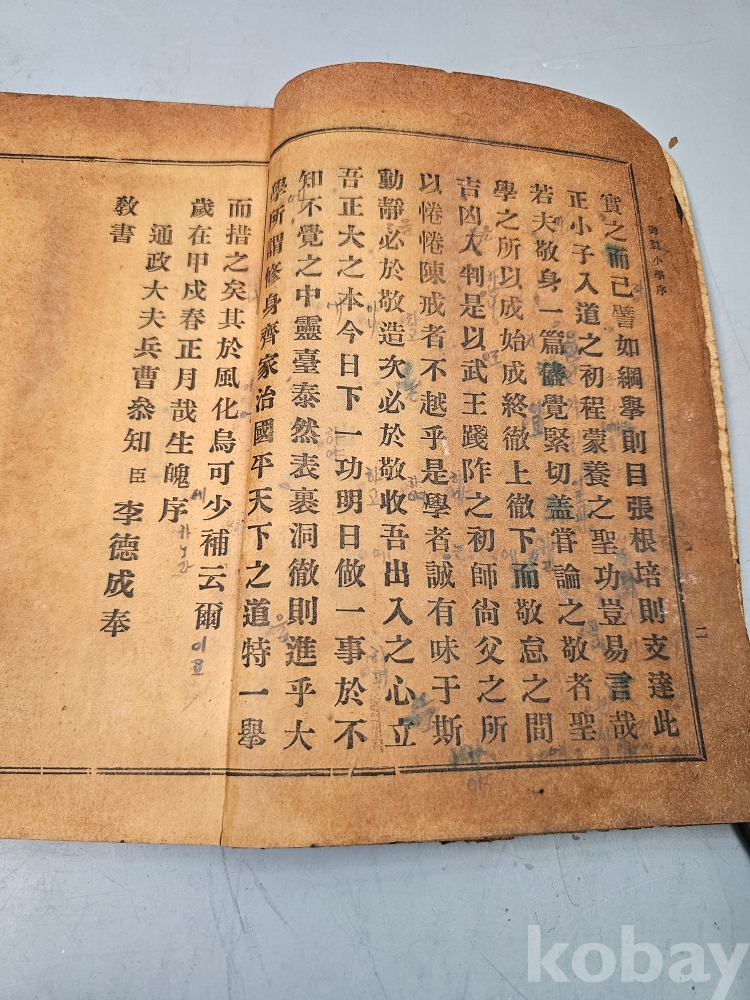 御製小學序
二
實之而已譬如綱擧則目張根培則支達此
正小子入道之初程蒙養之聖功豈易言哉
若夫敬身一篇儘覺緊切盖嘗論之敬者聖
學之所以成始成終徹上徹下而敬怠之間
吉凶立判是以武王踐阼之初師尙父之所
以惓惓陳戒者不越乎是學者誠有味于斯
動靜必於敬造次必於敬收吾出入之心立
吾正大之本今日下一功明日做一事於不
知不覺之中靈臺泰然表裏洞徹則進乎大
學所謂修身齊家治國平天下之道特一擧
而措之矣其於風化烏可少補云爾 이오
歲在甲戌春正月哉生魄序
通政大夫兵曹叅知臣李德成奉
敎書
kobay